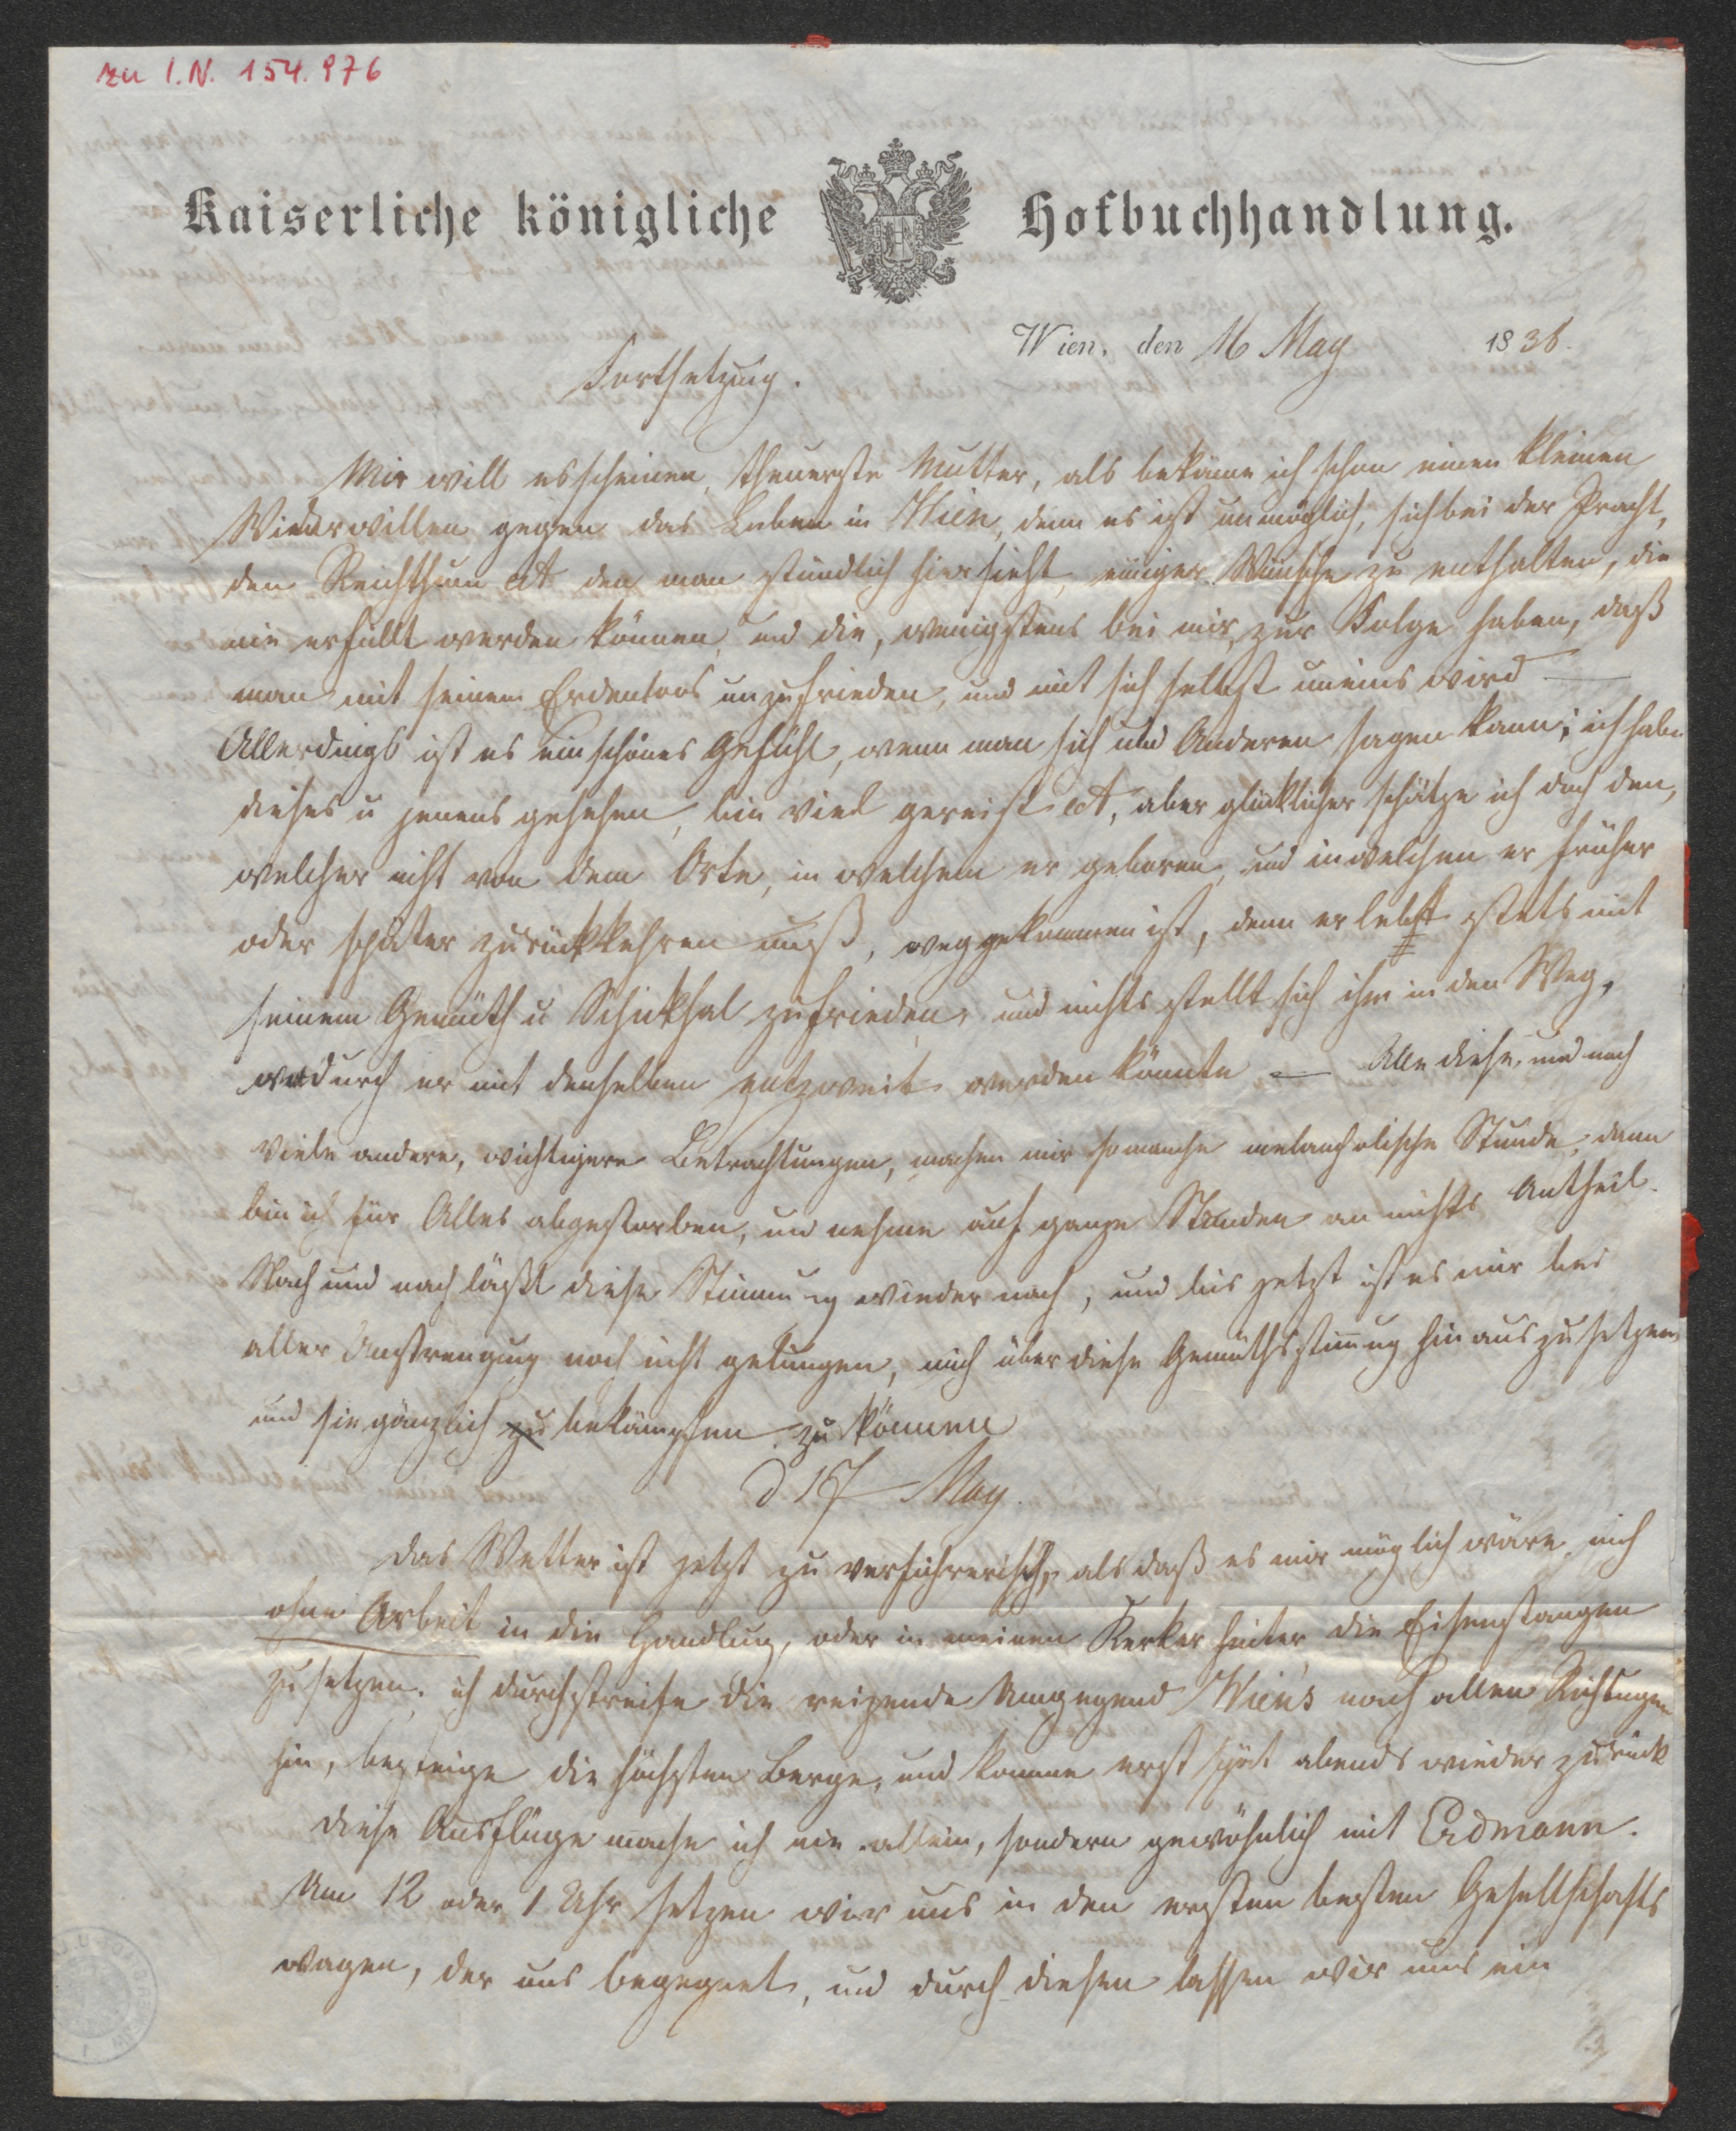 zu I.N. 154.976
Kaiserliche königliche Hofbuchhandlung.
Wien, den 16 May 1836.
Fortsetzung.
Mir will es scheinen, theuerste Mutter, als bekäme ich schon einen kleinen
Widerwillen gegen das Leben in Wien, denn es ist unmöglich, sich bei der Pracht,
den Reichthum ect den man stündlich hier sieht, einiger Wünsche zu enthalten, die
nie erfüllt werden können, und die, wenigstens bei mir, zur Folge haben, daß
man mit seinem Erdenloos unzufrieden, und mit sich selbst uneins wird —
Allerdings ist es ein schönes Gefühl, wenn man sich und Anderen sagen kann; ich habe
dieses u jenens gesehen, bin viel gereist ect, aber glücklicher schätze ich doch den,
welcher nicht von dem Orte, in welchem er geboren, und in welchen er früher
oder später zurükkehren muß, weggekommen ist, denn er lebt stets mit
seinem Gemüth u Schicksal zufrieden, und nichts stellt sich ihm in den Weg,
wodurch er mit denselben entzweit werden könnte — Alle diese, und noch
viele andere, wichtigere Betrachtungen, machen mir so manche melancholische Stunde, dann
bin ich für Alles abgestorben, und nehme auf ganze Stunden an nichts Antheil.
Nach und nach läßt diese Stimmung wieder nach, und bis jetzt ist es mir bei
aller Anstrengung noch nicht gelungen, mich über diese Gemüthsstimmung hinaus zu setzen,
und sie gänzlich zu bekämpfen zu können
d 17 May.
Das Wetter ist jetzt zu verführerisch, als daß es mir möglich wäre, mich
ohne Arbeit in die Handlung, oder in meinen Kerker hinter die Eisenstangen
zu setzen; ich durchstreife die reizende Umgegend Wien's nach allen Richtungen
hin, besteige die höchsten Berge, und komme erst spät abends wieder zurück
Diese Ausflüge mache ich nie allein, sondern gewöhnlich mit Erdmann.
Um 12 oder 1 Uhr setzen wir uns in den ersten besten Gesellschafts
wagen, der uns begegnet, und durch diesen lassen wir uns ein